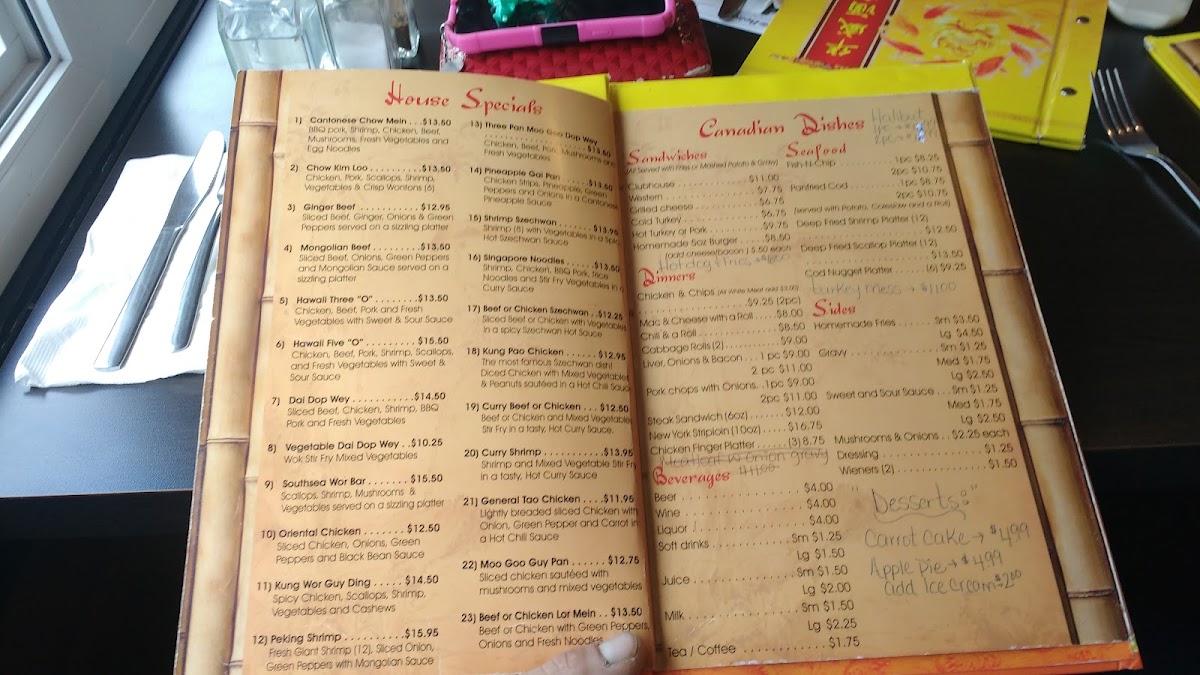 House Specials
1) Cantonese Chow Mein . . .$13.50
BBQ pork, Shrimp, Chicken, Beef,
Mushrooms, Fresh Vegetables and
Egg Noodles
2) Chow Kim Loo . . . . . . . . .$13.50
Chicken, Pork, Scallops, Shrimp,
Vegetables & Crisp Wontons (6)
3) Ginger Beef . . . . . . . . . .$12.95
Sliced Beef, Ginger, Onions & Green
Peppers served on a sizzling platter
4) Mongolian Beef . . . . . . . .$13.50
Sliced Beef, Onions, Green Peppers
and Mongolian Sauce served on a
sizzling platter
5) Hawaii Three "O" . . . . . . .$13.50
Chicken, Beef, Pork and Fresh
Vegetables with Sweet & Sour Sauce
6) Hawaii Five "O" . . . . . . . .$15.50
Chicken, Beef, Pork, Shrimp, Scallops,
and Fresh Vegetables with Sweet &
Sour Sauce
7) Dai Dop Wey . . . . . . . . . .$14.50
Sliced Beef, Chicken, Shrimp, BBQ
Pork and Fresh Vegetables
8) Vegetable Dai Dop Wey . .$10.25
Wok Stir Fry Mixed Vegetables
9) Southsea Wor Bar . . . . . . .$15.50
Scallops, Shrimp, Mushrooms &
Vegetables served on a sizzling platter
10) Oriental Chicken . . . . . . . .$12.50
Sliced Chicken, Onions, Green
Peppers and Black Bean Sauce
11) Kung Wor Guy Ding . . . . . $14.50
Spicy Chicken, Scallops, Shrimp,
Vegetables and Cashews
12) Peking Shrimp . . . . . . . . . .$15.95
Fresh Giant Shrimp (12), Sliced Onion,
Green Peppers with Mongolian Sauce
13) Three Pan Moo Goo Dop Wey
. . . . . . . . . . . . . . . . . . . .$13.50
Chicken, Beef, Pan Mushrooms and
Fresh Vegetables
14) Pineapple Gai Pan . . . . . .$13.50
Chicken Strips, Pineapple, Green
Peppers and Onions in a Cantonese
Pineapple Sauce
15) Shrimp Szechwan . . . . . . .$13.95
Shrimp (8) with Vegetables in a Spicy
Hot Szechwan Sauce
16) Singapore Noodles . . . . . .$13.50
Shrimp, Chicken, BBQ Pork, Rice
Noodles and Stir Fry Vegetables in a
Curry Sauce
17) Beef or Chicken Szechwan .$12.25
Sliced Beef or Chicken with Vegetables
in a spicy Szechwan Hot Sauce
18) Kung Pao Chicken . . . . . . .$12.95
The most famous Szechwan dish!
Diced Chicken with Mixed Vegetables
& Peanuts sautéed in a Hot Chili Sauce
19) Curry Beef or Chicken . . . $12.50
Beef or Chicken and Mixed Vegetable
Stir Fry in a tasty, Hot Curry Sauce.
20) Curry Shrimp . . . . . . . . . . .$13.95
Shrimp and Mixed Vegetable Stir Fry
in a tasty, Hot Curry Sauce
21) General Tao Chicken . . . .$11.95
Lightly breaded sliced Chicken with
Onion, Green Pepper and Carrot in
a Hot Chili Sauce
22) Moo Goo Guy Pan . . . . . . .$12.75
Sliced chicken sautéed with
mushrooms and mixed vegetables
23) Beef or Chicken Lor Mein . . $13.50
Beef or Chicken with Green Peppers,
Onions and Fresh Noodles
Canadian Dishes
Sandwiches
(All Served with Fries or Mashed Potato & Gravy)
Clubhouse . . . . . . . . . . . . . $11.00
Western . . . . . . . . . . . . . . . . $7.75
Grilled cheese . . . . . . . . . . . $6.75
Cold Turkey . . . . . . . . . . . . . $6.75
Hot Turkey or Pork . . . . . . . . $9.75
Homemade 5oz Burger . . . . .$8.50
(add cheese/bacon) $.50 each
Hot dog & Fries
Dinners
Chicken & Chips (All White Meat add $3.00)
. . . . . . . . . . . . . . . .$9.25 (2pc)
Mac & Cheese with a Roll . . . . .$8.00
Chili & a Roll . . . . . . . . . . . . .$8.50
Cabbage Rolls (2) . . . . . . . . . . .$9.00
Liver, Onions & Bacon . . . 1 pc $9.00
2 pc $11.00
Pork chops with Onions . .1pc $9.00
2pc $11.00
Steak Sandwich (6oz) . . . . . . .$12.00
New York Striploin (10oz) . . . . .$16.75
Chicken Finger Platter . . . . . .(3) 8.75
Meatloaf w onion gravy
$11.00
Beverages
Beer . . . . . . . . . . . . . . . . $4.00
Wine . . . . . . . . . . . . . . . . $4.00
Liquor . . . . . . . . . . . . . . . $4.00
Soft drinks . . . . . . . . . . .Sm $1.25
Lg $1.50
Juice . . . . . . . . . . . . . . .Sm $1.50
Lg $2.00
Milk . . . . . . . . . . . . . . . .Sm $1.50
Lg $2.25
Tea / Coffee . . . . . . . . . . . . $1.75
Halibut
Seafood
Fish-N-Chip . . . . . . . . . . . 1pc $8.25
2pc $10.75
Panfried Cod . . . . . . . . . . .1pc $8.75
2pc $10.75
(served with Potato, Coleslaw and a Roll)
Deep Fried Shrimp Platter (12)
. . . . . . . . . . . . . . . . . . . . . $12.50
Deep Fried Scallop Platter (12)
. . . . . . . . . . . . . . . . . . . . . $13.50
Cod Nugget Platter . . . . . . . (6) $9.25
turkey mess → $11.00
Sides
Homemade Fries . . . . . . Sm $3.50
Lg $4.50
Gravy . . . . . . . . . . . . . . . Sm $1.25
Med $1.75
Lg $2.50
Sweet and Sour Sauce . . . Sm $1.25
Med $1.75
Lg $2.50
Mushrooms & Onions . . $2.25 each
Dressing . . . . . . . . . . . . . . . $1.25
Wieners (2) . . . . . . . . . . . . . $1.50
"Desserts:"
Carrot Cake → $4.99
Apple Pie → $4.99
add Ice Cream $2.00